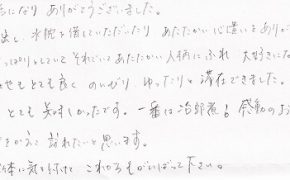 になり ありがとうございました。
出し、水枕を借していただいたり あたたかい心遣いをありが
っぱりとしていて それでいて あたたかい人柄にふれ 大好きにな
せもとても良く のんびり、ゆったりと 滞在できました。
とても美味しかったです。一番は治部煮! 感動のよ
ぜひ訪れたいと思います。
体に気をつけて これからもがんばって下さい。